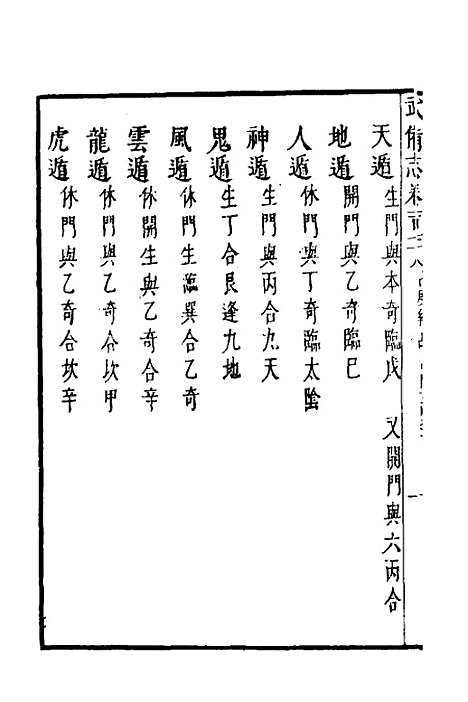 武備志卷
天遁 生門與本奇臨戊 又開門與六丙合
地遁 開門與乙奇臨巳
人遁 休門與丁奇臨太陰
神遁 生門與丙合九天
鬼遁 生丁合艮逢九地
風遁 休門生臨巽合乙奇
雲遁 休開生與乙奇合辛
龍遁 休門與乙奇合坎甲
虎遁 休門與乙奇合坎辛